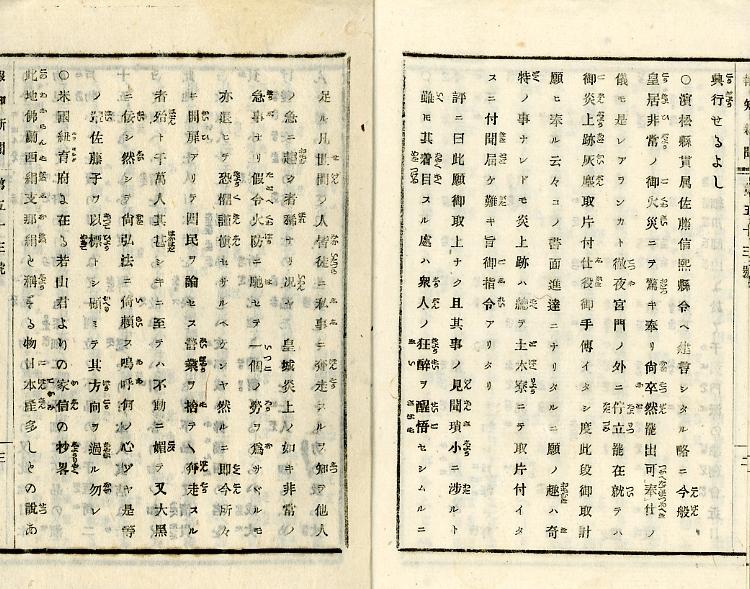 興行せるよし
○濱松縣貫属佐藤信熙縣令ヘ建言シタル略ニ今般
皇居非常ノ御火災ニテ驚キ奉リ尙卒然罷出可奉仕ノ
儀モ是レアランカト徹夜宮門ノ外ニ佇立罷在就テハ
御炎上跡灰塵取片付仕役御手傳イタシ度此段御取計
願ヒ奉ル云々コノ書面進達ニナリタルニ願ノ趣ハ奇
特ノ事ナレドモ炎上跡ハ總テ土木寮ニテ取片付イタ
スニ付聞屆ケ難キ旨御指令アリタリ
評ニ曰此願御取上ナク且其事ノ見聞瑣小ニ涉ルト
雖モ其着目スル處ハ衆人ノ狂醉ヲ醒悟セシムルニ
足ル凡世間ノ人皆徒ニ私事ニ奔走スルヲ知ヲ他人
ノ急ニ趨ク者稀ナリ況ヤ 皇城炎上ノ如キ非常ノ
急事ナリ假令火防ニ馳セテ一個ノ勞ヲ爲サヾルモ
亦退ヒテ恐懼謹愼セサルベケンヤ然ルニ卽今所々
ニ開扉アリテ四民ヲ論セス營業ヲ捨テヽ奔走スル
者殆ト千萬人其甚シキニ至テハ不動ニ媚テ又大黑
ニ佞シ然シテ尙弘法ニ倚賴ス嗚呼何ノ心ゾヤ是等
ノ輩佐藤子ヲ以標トシ顧ミテ其方向ヲ過ル勿レ
○米國紐育府に在る若山君よりの家信の抄畧
此地佛蘭西絹支那絹と稱する物日本產多しとの說あ
報知新聞 第五十三號